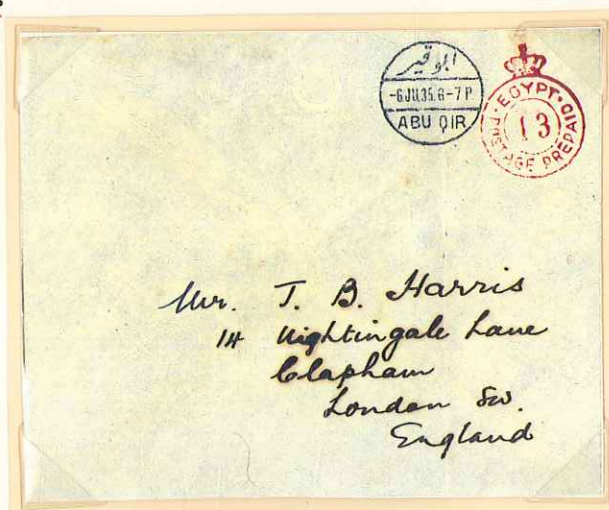 ابو قير
-6JU35.6-7P
ABU QIR
EGYPT
POSTAGE PREPAID
13
Mr. T. B. Harris
14 Nightingale Lane
Clapham
London SW.
England